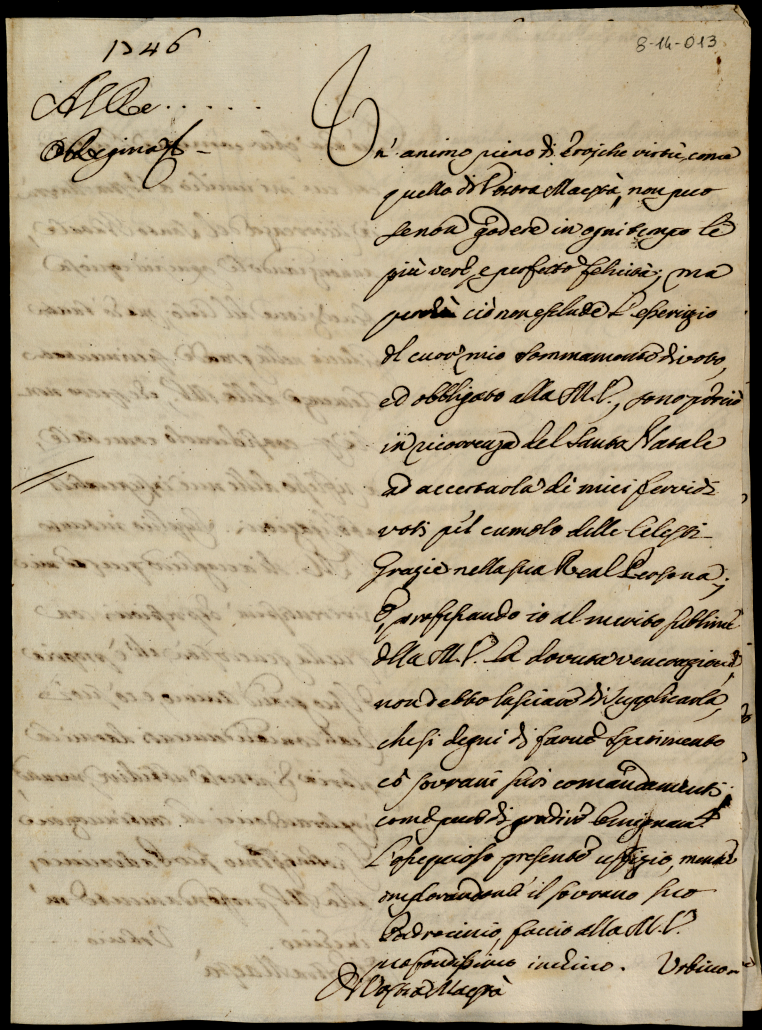 1346
8-14-013
Alla . . . . .
Regina
Un' animo pieno di Eroiche virtù, come
quello di Vostra Maestà, non può
senon godere in ogni tempo le
più vere, e perfette felicità; ma
perchè ciò non esclude l'esercizio
del cuor mio sommamente divoto,
ed obbligato alla M.V., sono perciò
in ricorrenza del Santo Natale
ad accertarla de miei fervidi
voti p'il cumolo delle Celesti
Grazie nella sua Real Persona;
E professando io al merito sublime
della M.V. la dovuta venerazione,
non debbo lasciare di supplicarla,
che si degni di farne sperimento
co' sovrani suoi comandamenti;
come pure di gradire benignam.te
l'ossequioso presente uffizio, mentre
implorandone il sovrano suo
Padrocinio, faccio alla M.V.
profondissimo inchino. Urbino
Di Vostra Maestà